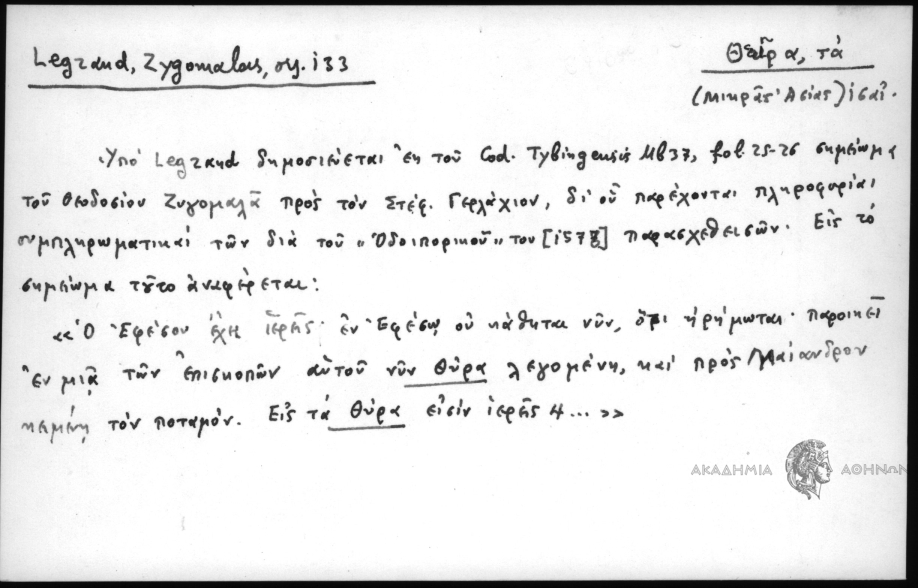 Legrand, Zygomalas, σσ. 133
Θεῖρα, τά
(Μικρᾶς Ἀσίας) ις αἰ.
Ὑπό Legrand δημοσιεύεται ἐκ τοῦ Cod. Tybingensis Mb 37, fol. 25-26 σημείωμα
τοῦ Θεοδοσίου Ζυγομαλᾶ πρός τόν Στέφ. Γερλάχιον, δι' οὗ παρέχονται πληροφορίαι
συμπληρωματικαί τῶν διά τοῦ „Ὁδοιπορικοῦ" του [157] παρασχεθεισῶν. Εἰς τό
σημείωμα τοῦτο ἀναφέρεται:
«Ὁ Ἐφέσου ἔχει ἱερεῖς· ἐν Ἐφέσῳ οὐ κάθηται νῦν, ὅτι ἠρήμωται· παροικεῖ
ἐν μιᾷ τῶν ἐπισκοπῶν αὐτοῦ νῦν Θύρα λεγομένη, καί πρός Μαίανδρον
κειμένη τόν ποταμόν. Εἰς τά Θύρα εἰσίν ἱερεῖς 4 ... »
ΑΚΑΔΗΜΙΑ ΑΘΗΝΩΝ